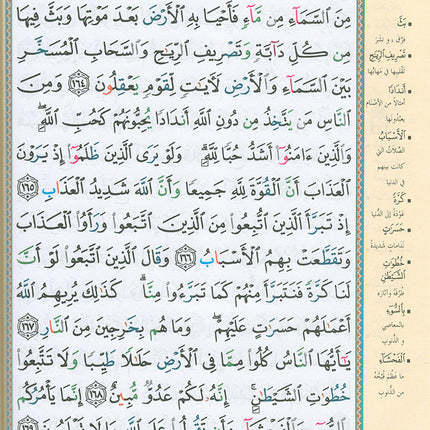 مِنَ ٱلسَّمَآءِ مِن مَّآءٍ فَأَحْيَا بِهِ ٱلْأَرْضَ بَعْدَ مَوْتِهَا وَبَثَّ فِيهَا
مِن كُلِّ دَآبَّةٍ وَتَصْرِيفِ ٱلرِّيَٰحِ وَٱلسَّحَابِ ٱلْمُسَخَّرِ
بَيْنَ ٱلسَّمَآءِ وَٱلْأَرْضِ لَأٓيَٰتٍ لِّقَوْمٍ يَعْقِلُونَ ١٦٤ وَمِنَ
ٱلنَّاسِ مَن يَتَّخِذُ مِن دُونِ ٱللَّهِ أَندَادًا يُحِبُّونَهُمْ كَحُبِّ ٱللَّهِ ۖ
وَٱلَّذِينَ ءَامَنُوٓا۟ أَشَدُّ حُبًّا لِّلَّهِ ۗ وَلَوْ يَرَى ٱلَّذِينَ ظَلَمُوٓا۟ إِذْ يَرَوْنَ
ٱلْعَذَابَ أَنَّ ٱلْقُوَّةَ لِلَّهِ جَمِيعًا وَأَنَّ ٱللَّهَ شَدِيدُ ٱلْعَذَابِ ١٦٥
إِذْ تَبَرَّأَ ٱلَّذِينَ ٱتُّبِعُوا۟ مِنَ ٱلَّذِينَ ٱتَّبَعُوا۟ وَرَأَوُا۟ ٱلْعَذَابَ
وَتَقَطَّعَتْ بِهِمُ ٱلْأَسْبَابُ ١٦٦ وَقَالَ ٱلَّذِينَ ٱتَّبَعُوا۟ لَوْ أَنَّ
لَنَا كَرَّةً فَنَتَبَرَّأَ مِنْهُمْ كَمَا تَبَرَّءُوا۟ مِنَّا ۗ كَذَٰلِكَ يُرِيهِمُ ٱللَّهُ
أَعْمَٰلَهُمْ حَسَرَٰتٍ عَلَيْهِمْ ۖ وَمَا هُم بِخَٰرِجِينَ مِنَ ٱلنَّارِ ١٦٧
يَٰٓأَيُّهَا ٱلنَّاسُ كُلُوا۟ مِمَّا فِى ٱلْأَرْضِ حَلَٰلًا طَيِّبًا وَلَا تَتَّبِعُوا۟
خُطُوَٰتِ ٱلشَّيْطَٰنِ ۚ إِنَّهُۥ لَكُمْ عَدُوٌّ مُّبِينٌ ١٦٨ إِنَّمَا يَأْمُرُكُم
بِٱلسُّوٓءِ وَٱلْفَحْشَآءِ وَأَن تَقُولُوا۟ عَلَى ٱللَّهِ مَا لَا تَعْلَمُونَ ١٦٩
بَثَّ
فرّق، و نشر
تَصْرِيفِ ٱلرِّيَٰحِ
تقليبها في مهابّها
أَندَادًا
أمثالًا من الأصنام
يعبدونها
ٱلْأَسْبَابُ
الصّلات التي
كانت بينهم
في الدنيا
كَرَّةً
عودة إلى الدنيا
حَسَرَٰتٍ
ندامات شديدة
خُطُوَٰتِ
ٱلشَّيْطَٰنِ
طرقه و آثاره
بِٱلسُّوٓءِ
بالمعاصي
و الذنوب
ٱلْفَحْشَآءِ
ما عظم قبحه
من الذنوب